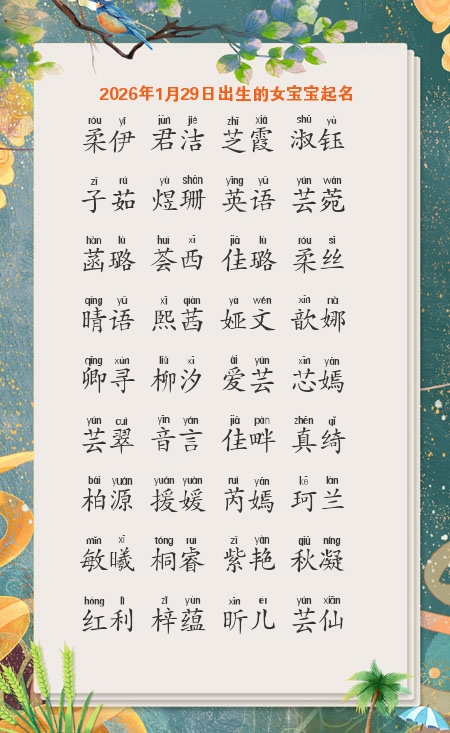 2026年1月29日出生的女宝宝起名
róu yī jùn jié zhī xiá shū yù
柔伊 君洁 芝霞 淑钰
zǐ rú yù shān yīng yǔ yún wǎn
子茹 煜珊 英语 芸菀
hàn lù huì xī jiā lù róu sī
菡璐 荟西 佳璐 柔丝
qíng yǔ xī qiàn yà wén xīn nà
晴语 熙茜 娅文 歆娜
qīng xún liǔ xī ài yún xīn yān
卿寻 柳汐 爱芸 芯嫣
yún cuì yīn yán jiā pàn zhēn qǐ
芸翠 音言 佳畔 真绮
bǎi yuán yuán yuàn ruì yān kē lán
柏源 援媛 芮嫣 珂兰
mǐn xī tóng ruì zǐ yàn qiū níng
敏曦 桐睿 紫艳 秋凝
hóng lì zǐ yùn xīn ér yún xiān
红利 梓蕴 昕儿 芸仙